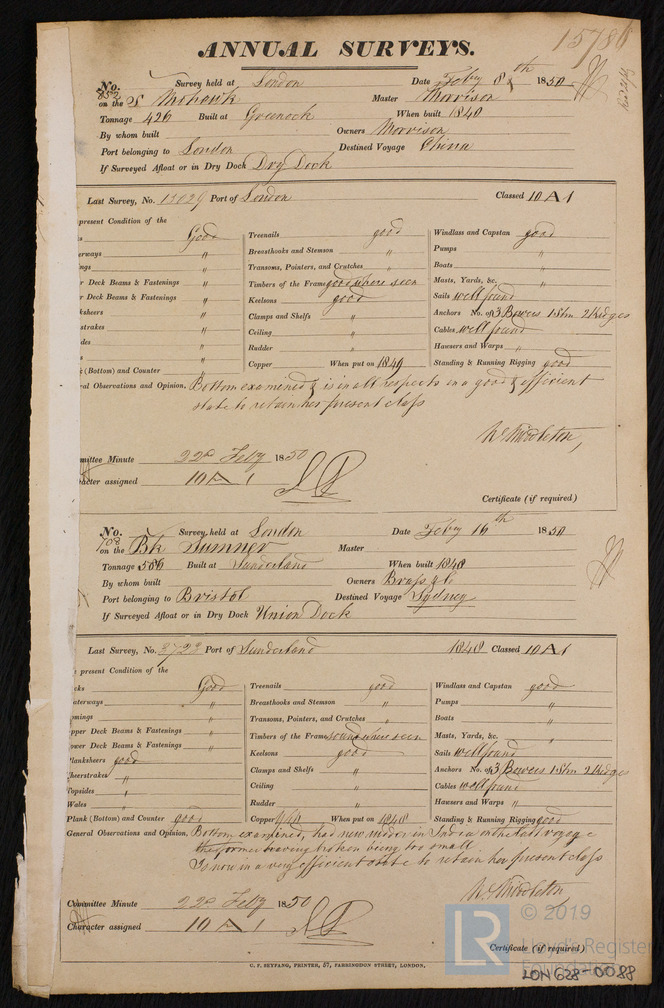 15786
ANNUAL SURVEYS.
No. 852 Survey held at London Date Feby 8th 1850
on the S Mohawk Master Morrison
Tonnage 426 Built at Greenock When built 1840
By whom built Owners Morrison
Port belonging to London Destined Voyage China
If Surveyed Afloat or in Dry Dock Dry Dock
Last Survey, No. 13029 Port of London Classed 10 A 1
present Condition of the
Good Treenails good Windlass and Capstan good
erways " Breasthooks and Stemson " Pumps "
ings " Transoms, Pointers, and Crutches " Boats "
r Deck Beams & Fastenings " Timbers of the Frame good where seen Masts, Yards, &c. "
r Deck Beams & Fastenings " Keelsons good Sails well found
ksheers " Clamps and Shelfs " Anchors No. of 3 Bowers 1 Strm 2 Kedges
strakes " Ceiling " Cables well found
des " Rudder " Hawsers and Warps "
k (Bottom) and Counter " Copper When put on 1849 Standing & Running Rigging good
ral Observations and Opinion, Bottom examined & is in all respects in a good & efficient
state to retain her present class
W. Middleton,
mmittee Minute 22d Feby 1850
racter assigned 10 A 1
Certificate (if required)
No. 708 Survey held at London Date Feby 16th 1850
on the Bk Sumner Master
Tonnage 586 Built at Sunderland When built 1848
By whom built Owners Brass & Co
Port belonging to Bristol Destined Voyage Sydney
If Surveyed Afloat or in Dry Dock Union Dock
Last Survey, No. 3723 Port of Sunderland 1848 Classed 10 A 1
present Condition of the
cks Good Treenails good Windlass and Capstan good
aterways " Breasthooks and Stemson " Pumps "
omings " Transoms, Pointers, and Crutches " Boats "
pper Deck Beams & Fastenings " Timbers of the Frame sound where seen Masts, Yards, &c. "
ower Deck Beams & Fastenings " Keelsons good Sails well found
Planksheers good Clamps and Shelfs " Anchors No. of 3 Bowers 1 Strm 2 Kedges
Sheerstrakes " Ceiling " Cables well found
Topsides " Rudder " Hawsers and Warps "
Wales "
Plank (Bottom) and Counter good Copper When put on 1848 Standing & Running Rigging good
General Observations and Opinion, Bottom examined, had new rudder in India on the last voyage
the former having broken being too small
Is now in a very efficient state to retain her present class
W. Middleton
Committee Minute 22d Feby 1850
Character assigned 10 A 1
Certificate (if required)
C. F. SEYFANG, PRINTER, 57, FARRINGDON STREET, LONDON.
LR © 2019
Lloyd's Register
Foundation
LON628-0088